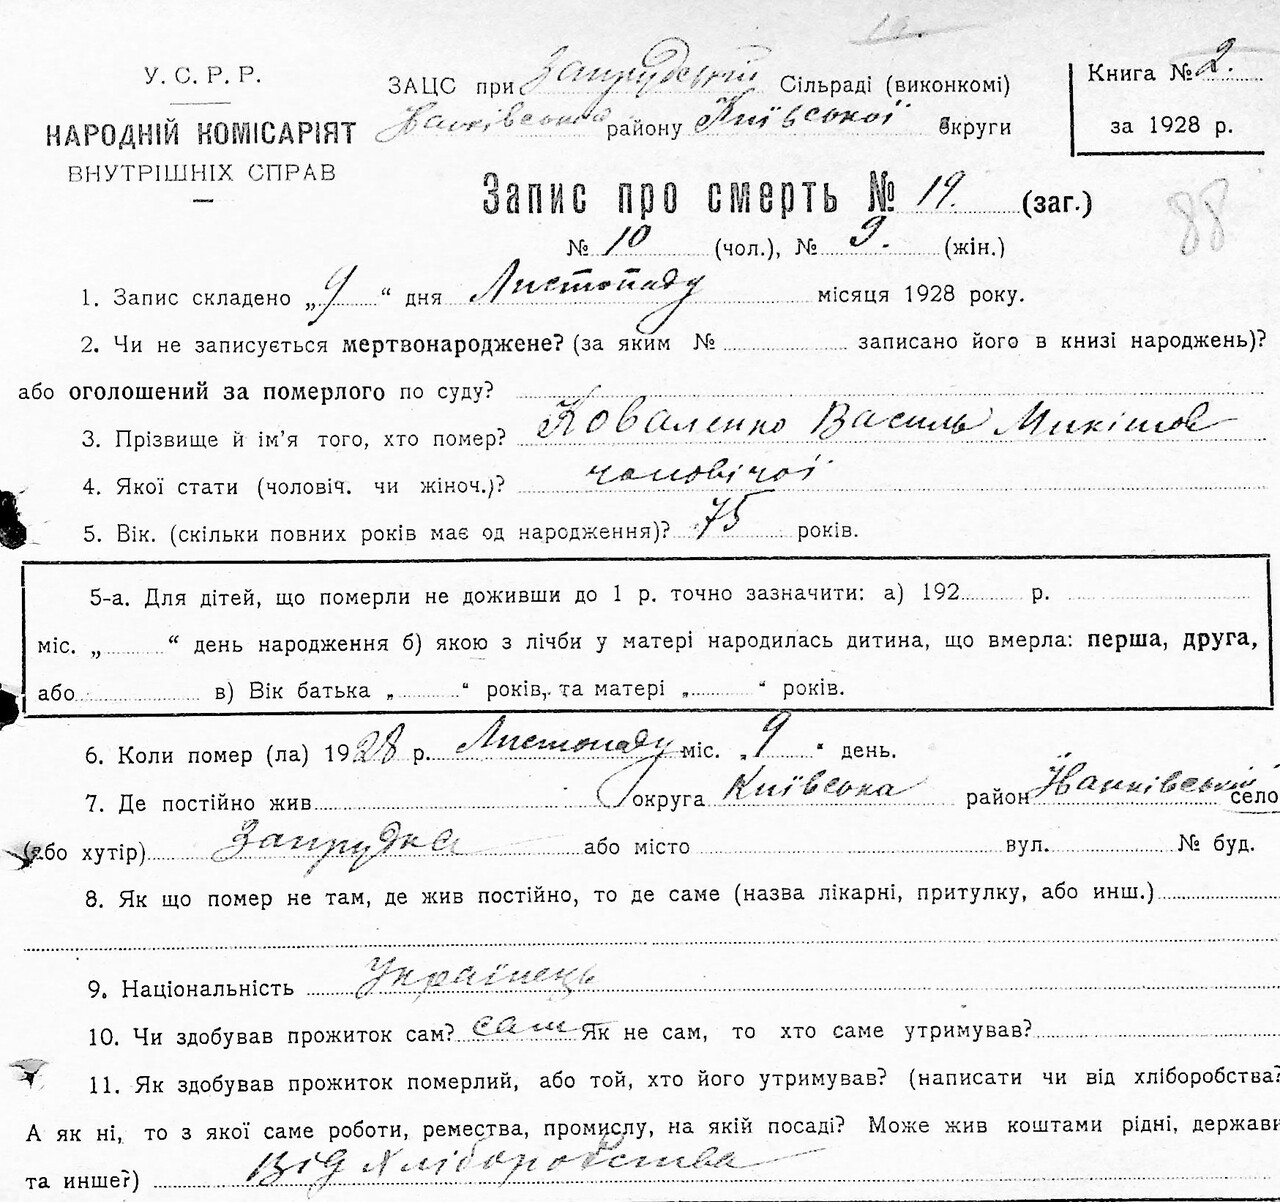 19.
У. С. Р. Р.
НАРОДНІЙ КОМІСАРІЯТ
ВНУТРІШНІХ СПРАВ
ЗАЦС при Запрудській Сільраді (виконкомі)
району Київської округи
Книга № 2.
за 1928 р.
Запис про смерть № 19. (заг.)
88
№ 10 (чол.), № 9. (жін.)
1. Запис складено „9“ дня Листопаду місяця 1928 року.
2. Чи не записується мертвонароджене? (за яким № записано його в книзі народжень)?
або оголошений за померлого по суду?
3. Прізвище й ім’я того, хто помер? Коваленко Василь Микитов
4. Якої стати (чоловіч. чи жіноч.)? чоловічої
5. Вік. (скільки повних років має од народження)? 75 років.
5-а. Для дітей, що померли не доживши до 1 р. точно зазначити: а) 192 р.
міс. „ “ день народження б) якою з лічби у матері народилась дитина, що вмерла: перша, друга,
або в) Вік батька „ “ років, та матері „ “ років.
6. Коли помер (ла) 1928 р. Листопаду міс. „9“ день.
7. Де постійно жив округа Київська район село
(або хутір) Запрудка або місто вул. № буд.
8. Як що помер не там, де жив постійно, то де саме (назва лікарні, притулку, або инш.)
9. Національність Українець
10. Чи здобував прожиток сам? сам Як не сам, то хто саме утримував?
11. Як здобував прожиток померлий, або той, хто його утримував? (написати чи від хліборобства?
А як ні, то з якої саме роботи, ремества, промислу, на якій посаді? Може жив коштами рідні, держави
та инше?) Від хліборобства